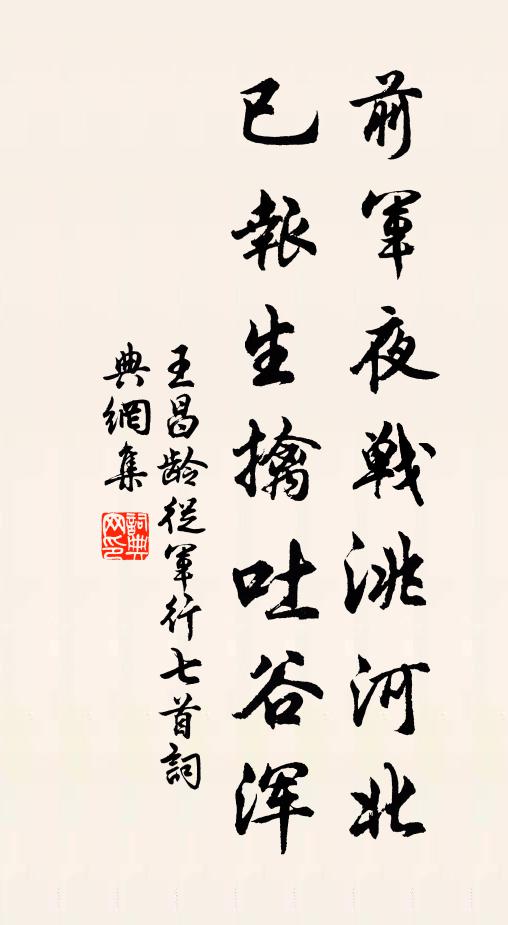 前軍夜戰洮河北
已報生擒吐谷浑
王昌龄從軍行七首詞
典網集
詞典网印